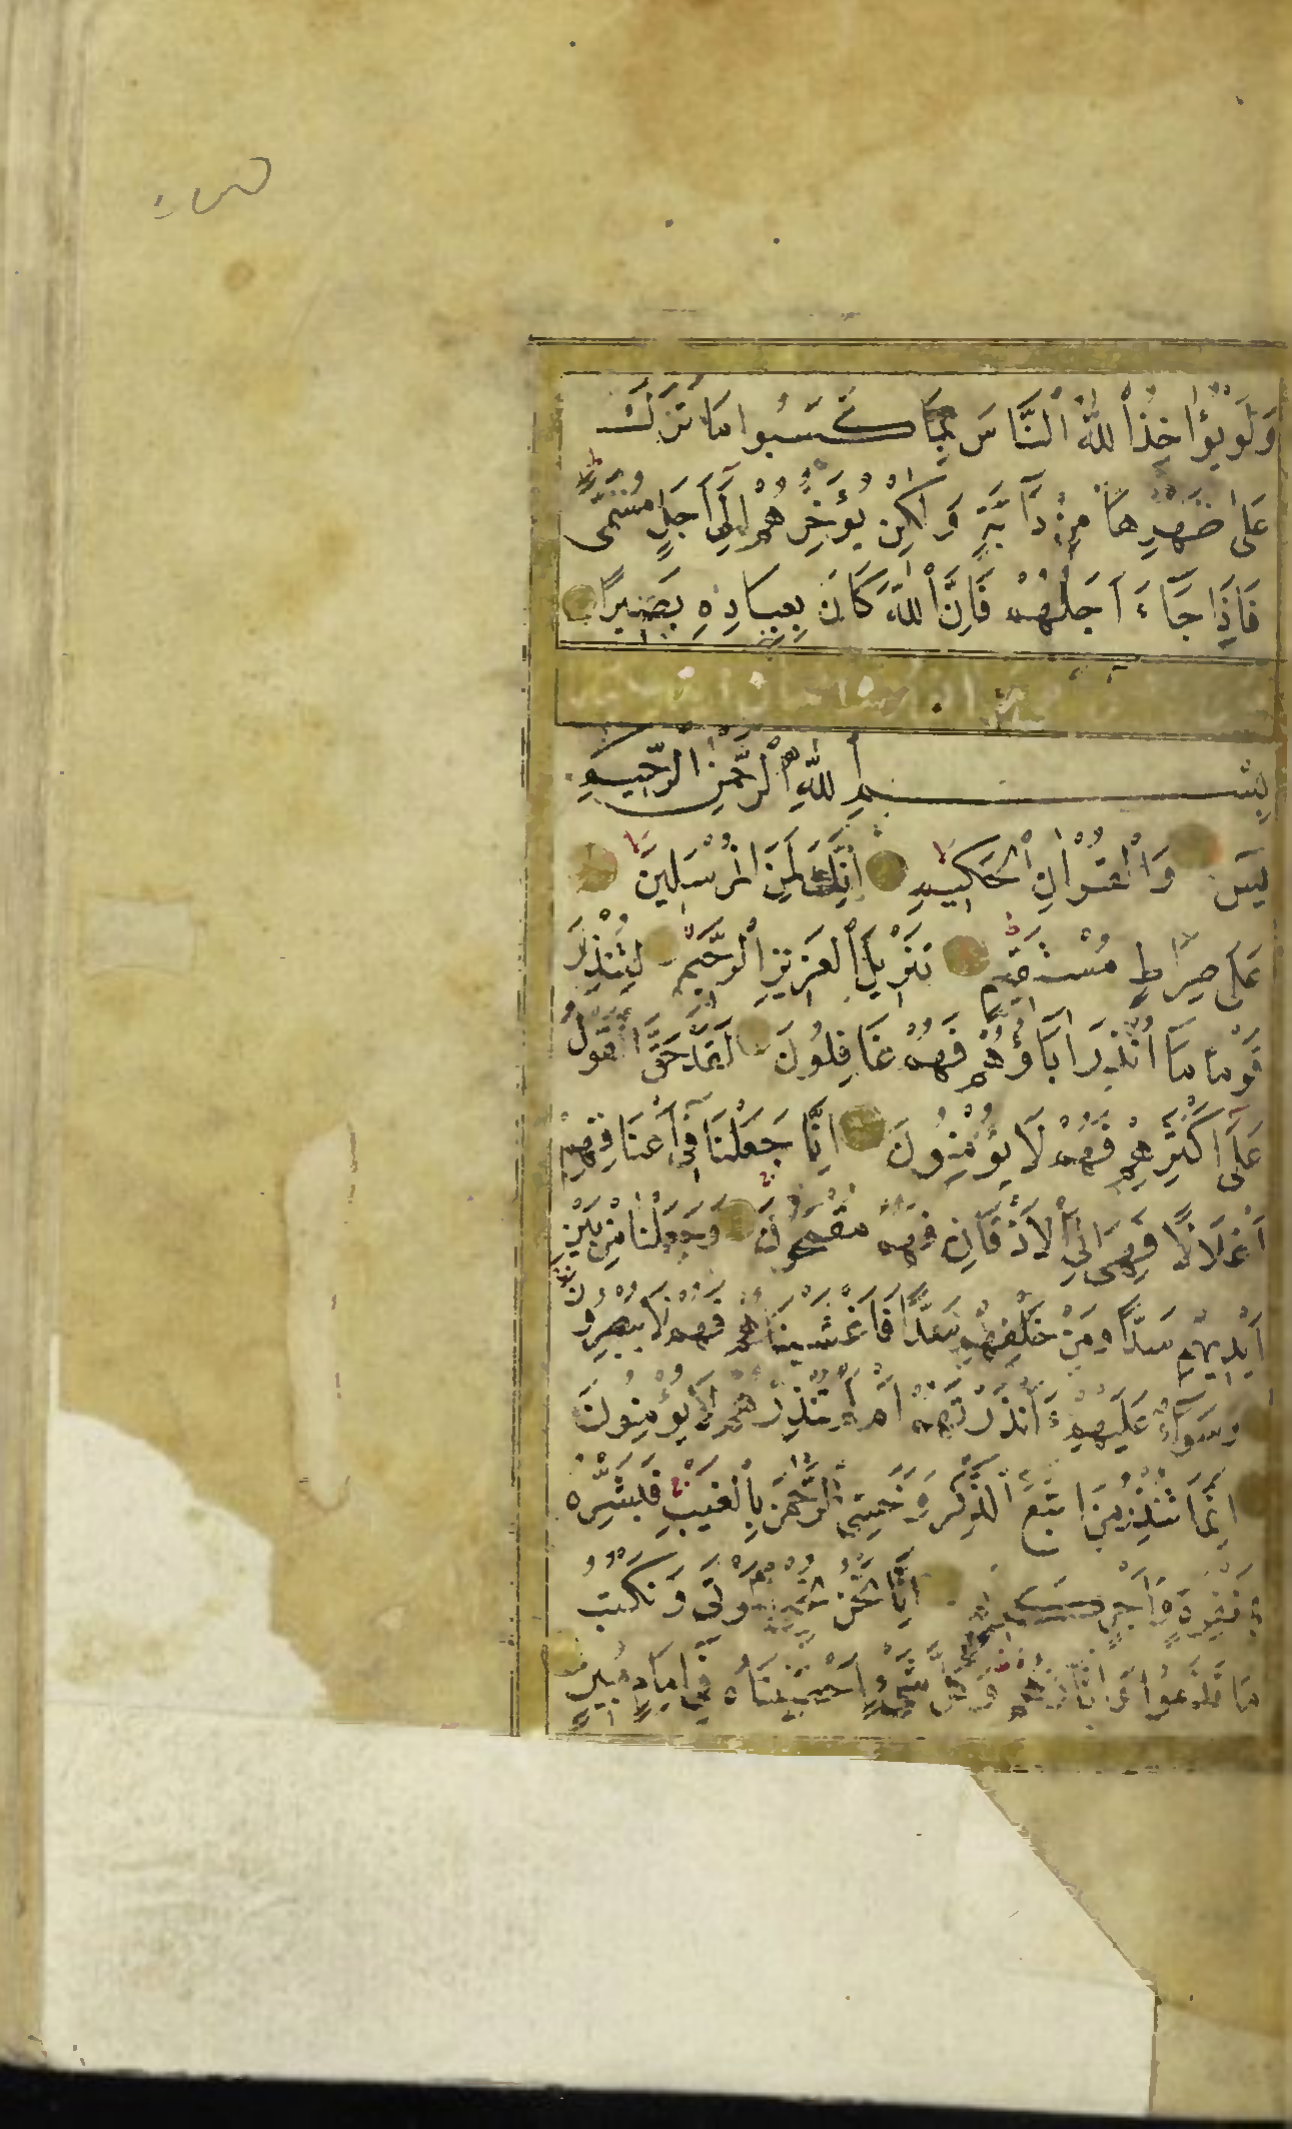 وَلَوْ يُؤَاخِذُ اللّٰهُ النَّاسَ بِمَا كَسَبُوا مَا تَرَكَ
عَلٰى ظَهْرِهَا مِنْ دَآبَّةٍ وَلٰكِنْ يُؤَخِّرُهُمْ اِلٰٓى اَجَلٍ مُسَمًّى
فَاِذَا جَآءَ اَجَلُهُمْ فَاِنَّ اللّٰهَ كَانَ بِعِبَادِهِ بَصِيرًا
بِسْمِ اللّٰهِ الرَّحْمٰنِ الرَّحِيمِ
يٰسٓ وَالْقُرْاٰنِ الْحَكِيمِ اِنَّكَ لَمِنَ الْمُرْسَلِينَ
عَلٰى صِرَاطٍ مُسْتَقِيمٍ تَنْزِيلَ الْعَزِيزِ الرَّحِيمِ لِتُنْذِرَ
قَوْمًا مَآ اُنْذِرَ اٰبَآؤُهُمْ فَهُمْ غَافِلُونَ لَقَدْ حَقَّ الْقَوْلُ
عَلٰٓى اَكْثَرِهِمْ فَهُمْ لَا يُؤْمِنُونَ اِنَّا جَعَلْنَا فِٓى اَعْنَاقِهِمْ
اَغْلَالًا فَهِىَ اِلَى الْاَذْقَانِ فَهُمْ مُقْمَحُونَ وَجَعَلْنَا مِنْ بَيْنِ
اَيْدِيهِمْ سَدًّا وَمِنْ خَلْفِهِمْ سَدًّا فَاَغْشَيْنَاهُمْ فَهُمْ لَا يُبْصِرُونَ
وَسَوَآءٌ عَلَيْهِمْ ءَاَنْذَرْتَهُمْ اَمْ لَمْ تُنْذِرْهُمْ لَا يُؤْمِنُونَ
اِنَّمَا تُنْذِرُ مَنِ اتَّبَعَ الذِّكْرَ وَخَشِىَ الرَّحْمٰنَ بِالْغَيْبِ فَبَشِّرْهُ
بِمَغْفِرَةٍ وَاَجْرٍ كَرِيمٍ اِنَّا نَحْنُ نُحْىِ الْمَوْتٰى وَنَكْتُبُ
مَا قَدَّمُوا وَاٰثَارَهُمْ وَكُلَّ شَىْءٍ اَحْصَيْنَاهُ فِٓى اِمَامٍ مُبِينٍ